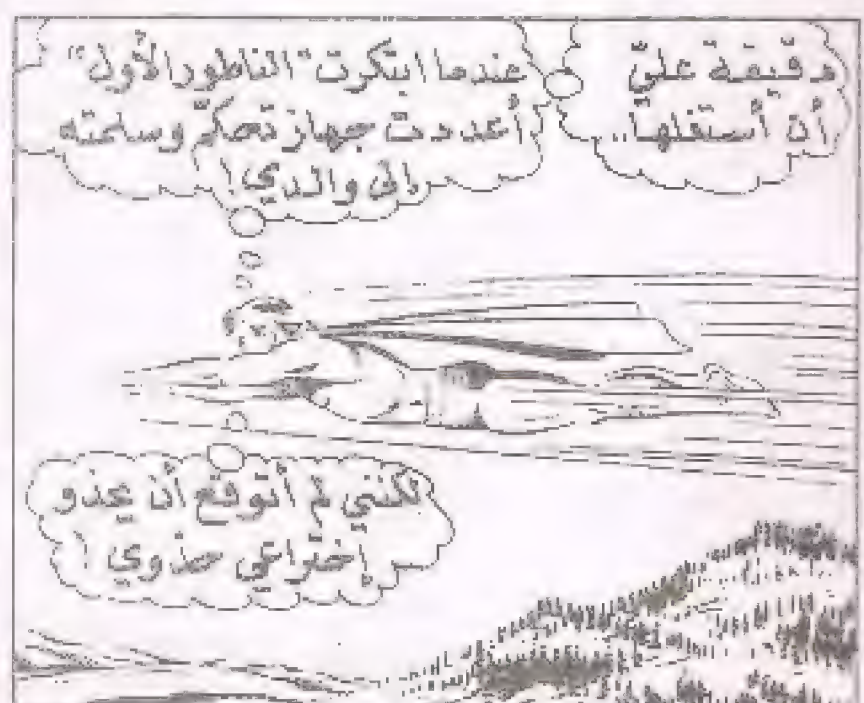 دقيقة عليّ
أن أستغلها..
عندما ابتكرت "الناطور الأول"
أعددت جهاز تحكّم وسلمته
إلى والدي!
لكنني لم أتوقع أن يحذو
إختراعي حذوي!